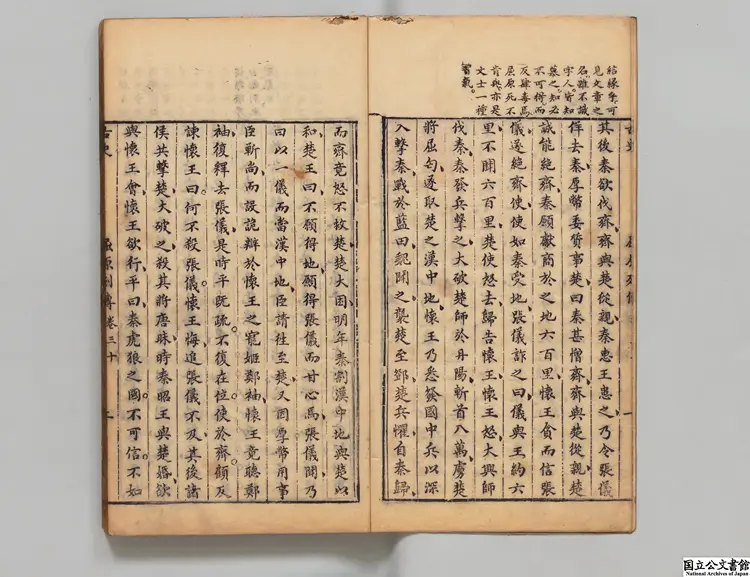 結縁爭可
見文章之
名雖不識
字人皆知
慕之知必
不可得而
反肆毒焉
屈原死不
肯與亦是
文士一種
習氣。
其後秦欲伐齊齊與楚從親秦惠王患之乃令張儀
佯去秦厚幣委質事楚曰秦甚憎齊齊與楚從親楚
誠能絶齊秦願獻商於之地六百里懷王貪而信張
儀遂絶齊使使如秦受地張儀詐之曰儀與王約六
里不聞六百里楚使怒去歸告懷王懷王怒大興師
伐秦秦發兵擊之大破楚師於丹陽斬首八萬虜楚
將屈匄遂取楚之漢中地懷王乃悉發國中兵以深
入擊秦戰於藍田魏聞之襲楚至鄧楚兵懼自秦歸
而齊竟怒不救楚楚大困明年秦割漢中地與楚以
和楚王曰不願得地願得張儀而甘心焉張儀聞乃
曰以一儀而當漢中地臣請往至楚又因厚幣用事
臣靳尚而設詭辯於懷王之寵姬鄭袖懷王竟聽鄭
袖復釋去張儀是時平既疏。不復在位使於齊顧反
諫懷王曰何不殺張儀。懷王悔追張儀不及其後諸
侯共擊楚大破之殺其將唐眜時秦昭王與楚婚欲
與懷王會懷王欲行平曰秦虎狼之國。不可信。不如
古史 屈原列傳 卷三十
国立公文書館
National Archives of Japan